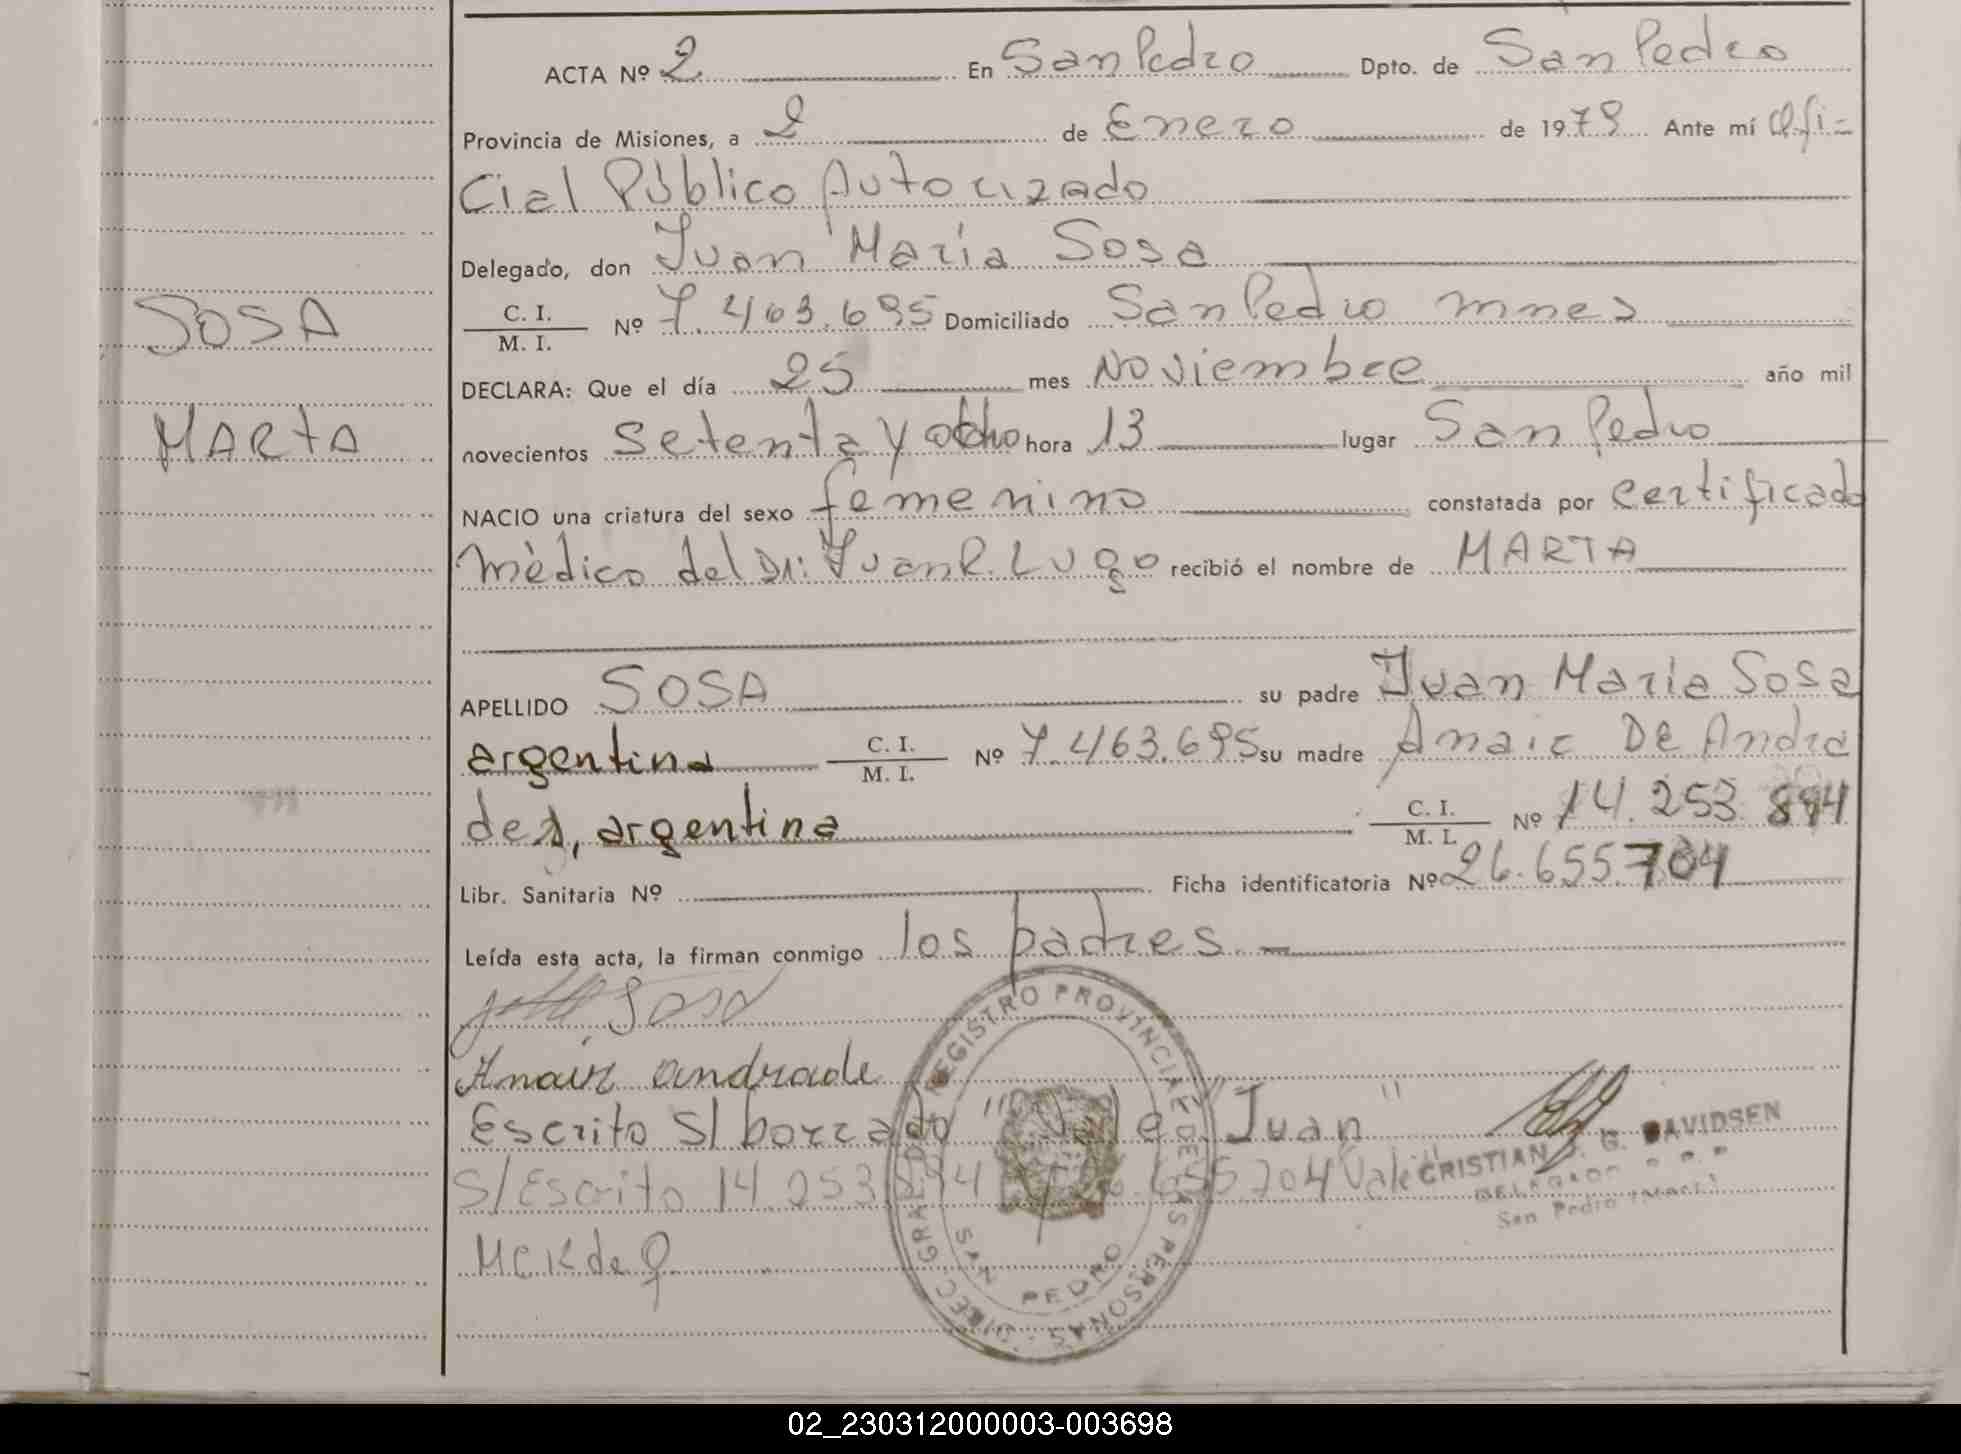 ACTA Nº 2 En San Pedro Dpto. de San Pedro
Provincia de Misiones, a 2 de Enero de 1979 Ante mí Ofi-
cial Público Autorizado
Delegado, don Juan María Sosa
SOSA
C. I. / M. I. Nº 7.463.695 Domiciliado San Pedro mnes
DECLARA: Que el día 25 mes Noviembre año mil
MARTA
novecientos setenta y ocho hora 13 lugar San Pedro
NACIO una criatura del sexo femenino constatada por certificado
mèdico del Dr: Juan R. Lugo recibió el nombre de MARTA
APELLIDO SOSA su padre Juan María Sosa
argentina C. I. / M. I. Nº 7.463.695 su madre Anair De Andra
des, argentina C. I. / M. I. Nº 14.253.894
Libr. Sanitaria Nº Ficha identificatoria Nº 26.655.704
Leída esta acta, la firman conmigo los padres.-
Sosa
Anair andrade
Escrito S/ borrado "Juan"
S/Escrito 14.253.894 655704 Vale
MCK de Q
DIREC. GRAL. DEL REGISTRO PROVINCIAL DE LAS PERSONAS
SAN PEDRO
CRISTIAN G. DAVIDSEN
DELEGADO
San Pedro (Mnes.)
02_230312000003-003698